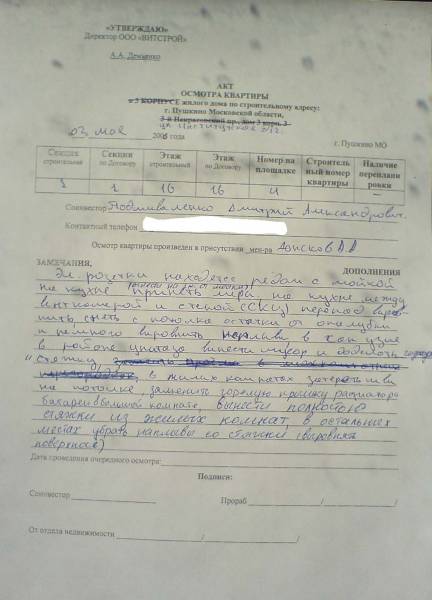 «УТВЕРЖДАЮ»
Директор ООО «ВИТСТРОЙ»
А.А. Демченко
АКТ
ОСМОТРА КВАРТИРЫ
в 3 КОРПУСЕ жилого дома по строительному адресу:
г. Пушкино Московской области,
3-й Некрасовский пр., дом 3 корп. 3
ул. Институтская
03 мая 2008 года
г. Пушкино МО
Секция строительный Секция по Договору Этаж строительный Этаж по Договору Номер на площадке Строительный номер квартиры Наличие перепланировки
1 16 16 4 —
Соинвестор Дмитрий Александрович.
Контактный телефон
Осмотр квартиры произведен в присутствии мен-ра Донсков А.А
ЗАМЕЧАНИЯ, ДОПОЛНЕНИЯ
Эл. розетки находятся рядом с мойкой
на кухне принять меры, на кухне между
вент камерой и стеной (ССКЦ) перепад
снять с потолка остатки от опалубки
и немного выровнять в сан узле
в районе унитаза вынести мусор и доделать
стяжку
в жилых комнатах затереть швы
на потолке, заменить горелую радиатора
батареи в большой комнате, вынести полностью
стяжки из жилых комнат, в остальных
местах убрать наплывы со стяжки (выровнять
поверхность)
Дата проведения очередного осмотра:
Подписи:
Соинвестор Прораб
От отдела недвижимости